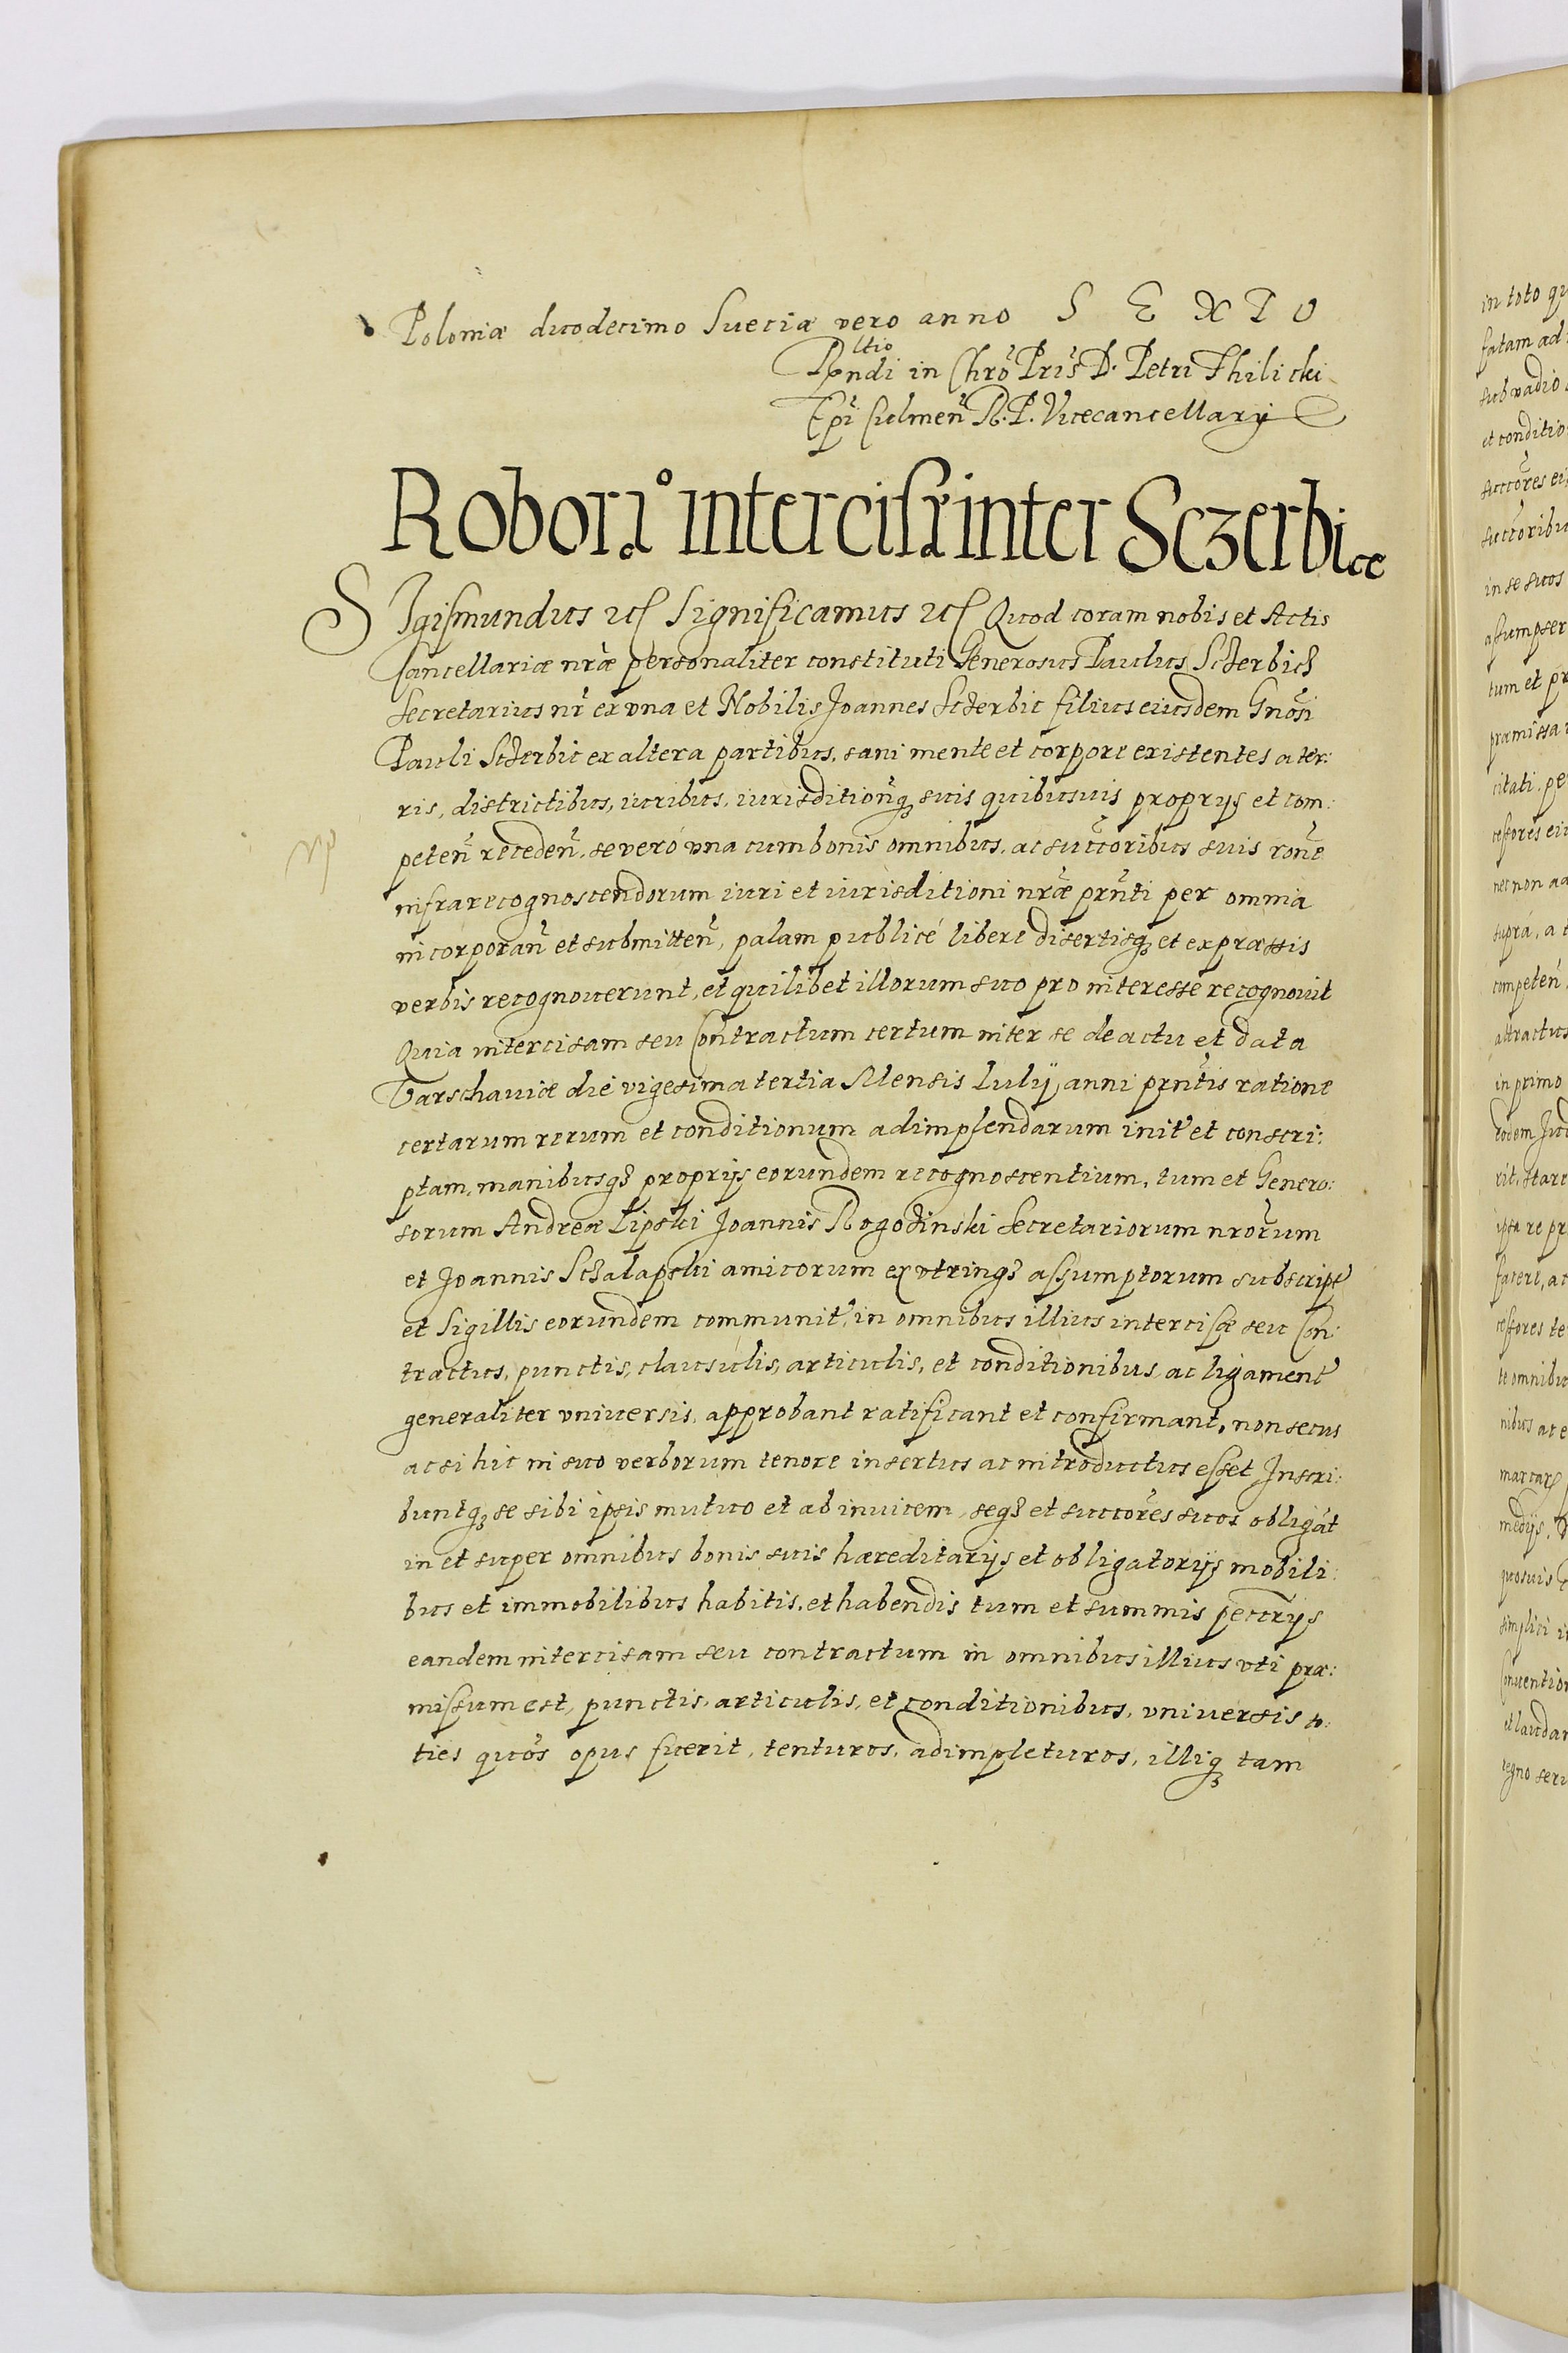 Poloniæ duodecimo Sueciæ vero anno S E X T O
Rltio
Rndi in Chrō Prīs D. Petri Thilicki
Epī Culmeñ R. P. Vicecancellarÿ
Robor:a:o intercisæ inter Sczerbice
SIgismundus etc Significamus etc Quod coram nobis et Actis
Cancellariæ nræ personaliter constituti Generosus Paulus Sczerbicz
Secretarius nr̄ ex vna et Nobilis Joannes Sczerbic filius eiusdem Gnōsi
Pauli Sczerbic ex altera partibus, sani mente et corpore existentes a ter:
ris, districtibus, iuribus, iurisdictionq3 suis quibusuis proprijs et com:
peteñ recedeñ, se veró vna cum bonis omnibus, ac succoribus suis rōne
infrarecognoscendorum iuri et iurisditioni nræ prñti per omnia
incorporañ et submitteñ, palam publicé libere disertisq3 et expræssis
verbis recognouerunt, et quilibet illorum suo pro interesse recognouit
Quia intercisam seu Contractum certum inter se de actu et data
Varschauiæ die vigesima tertia Mensis Iulij anni prñtis ratione
certarum rerum et conditionum adimplendarum init et conscri:
ptam, manibusq3 proprijs eorundem recognoscentium, tum et Genero:
sorum Andreæ Lipski Joannis Rogozinski Secretariorum nrōrum
et Joannis Schalapski amicorum ex vtrinq3 assumptorum subscript
et Sigillis eorundem communit, in omnibus illius intercisæ seu Con:
tractus, punctis, clausulis, articulis, et conditionibus ac ligament
generaliter vniuersis, approbant ratificant et confirmant, non secus
ac si hic in suo verborum tenore insertus ac introductus esset Inscri:
buntq3 se sibi ipsis mutuo et ab inuicem, seq3 et succōres suos obligāt
in et super omnibus bonis suis hæreditarijs et obligatorijs mobili:
bus et immobilibus habitis, et habendis tum et summis pecrijs
eandem intercisam seu contractum in omnibus illius vti præ:
missum est, punctis, articulis, et conditionibus, vniuersis to:
ties quōs opus fuerit, tenturos, adimpleturos, illiq3 tam
in toto
fatam ad
sub vadio
et conditio
succōres
succoribus
in se suos
assumpser
tum et pr
præmissa
citati, pe
cessores
nec non
supra, a
competeñ
attractus
in primo
eodem Jud
rit, stare
ipsa re pr
facere, ac
cessores te
te omnibus
nibus ac e
marcarz
medijs,
quosuis
simplici
Conuention
et laudar
regno seru